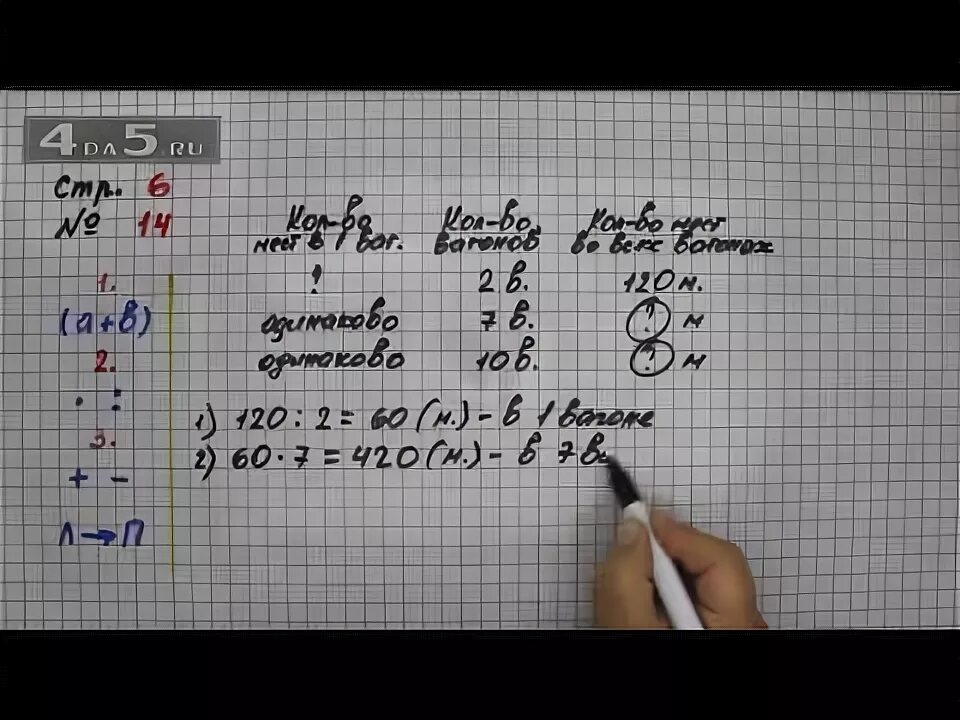 4DA5.RU
Стр. 6
№ 14
Кол-во Кол-во Кол-во мест
мест в 1 ваг. вагонов во всех вагонах
? 2 в. 120 м.
одинаково 7 в. ? м
одинаково 10 в. ? м
1.
(а+в)
2.
· :
3.
+ -
Л→П
1) 120 : 2 = 60 (м.) - в 1 вагоне
2) 60 · 7 = 420 (м.) - в 7 ва